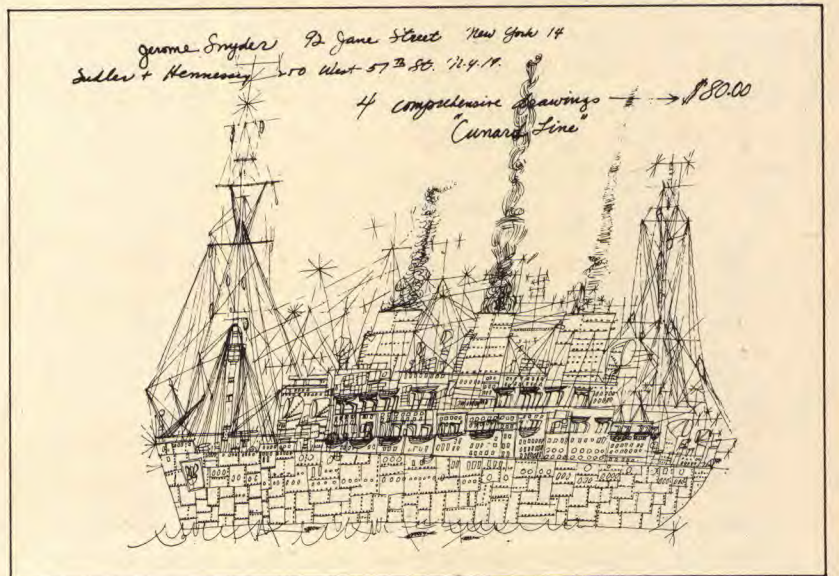 Jerome Snyder 92 Jane Street New York 14
Sudler + Hennessey 250 West 57th St. N.Y. 19.
4 comprehensive drawings → $80.00
"Cunard Line"